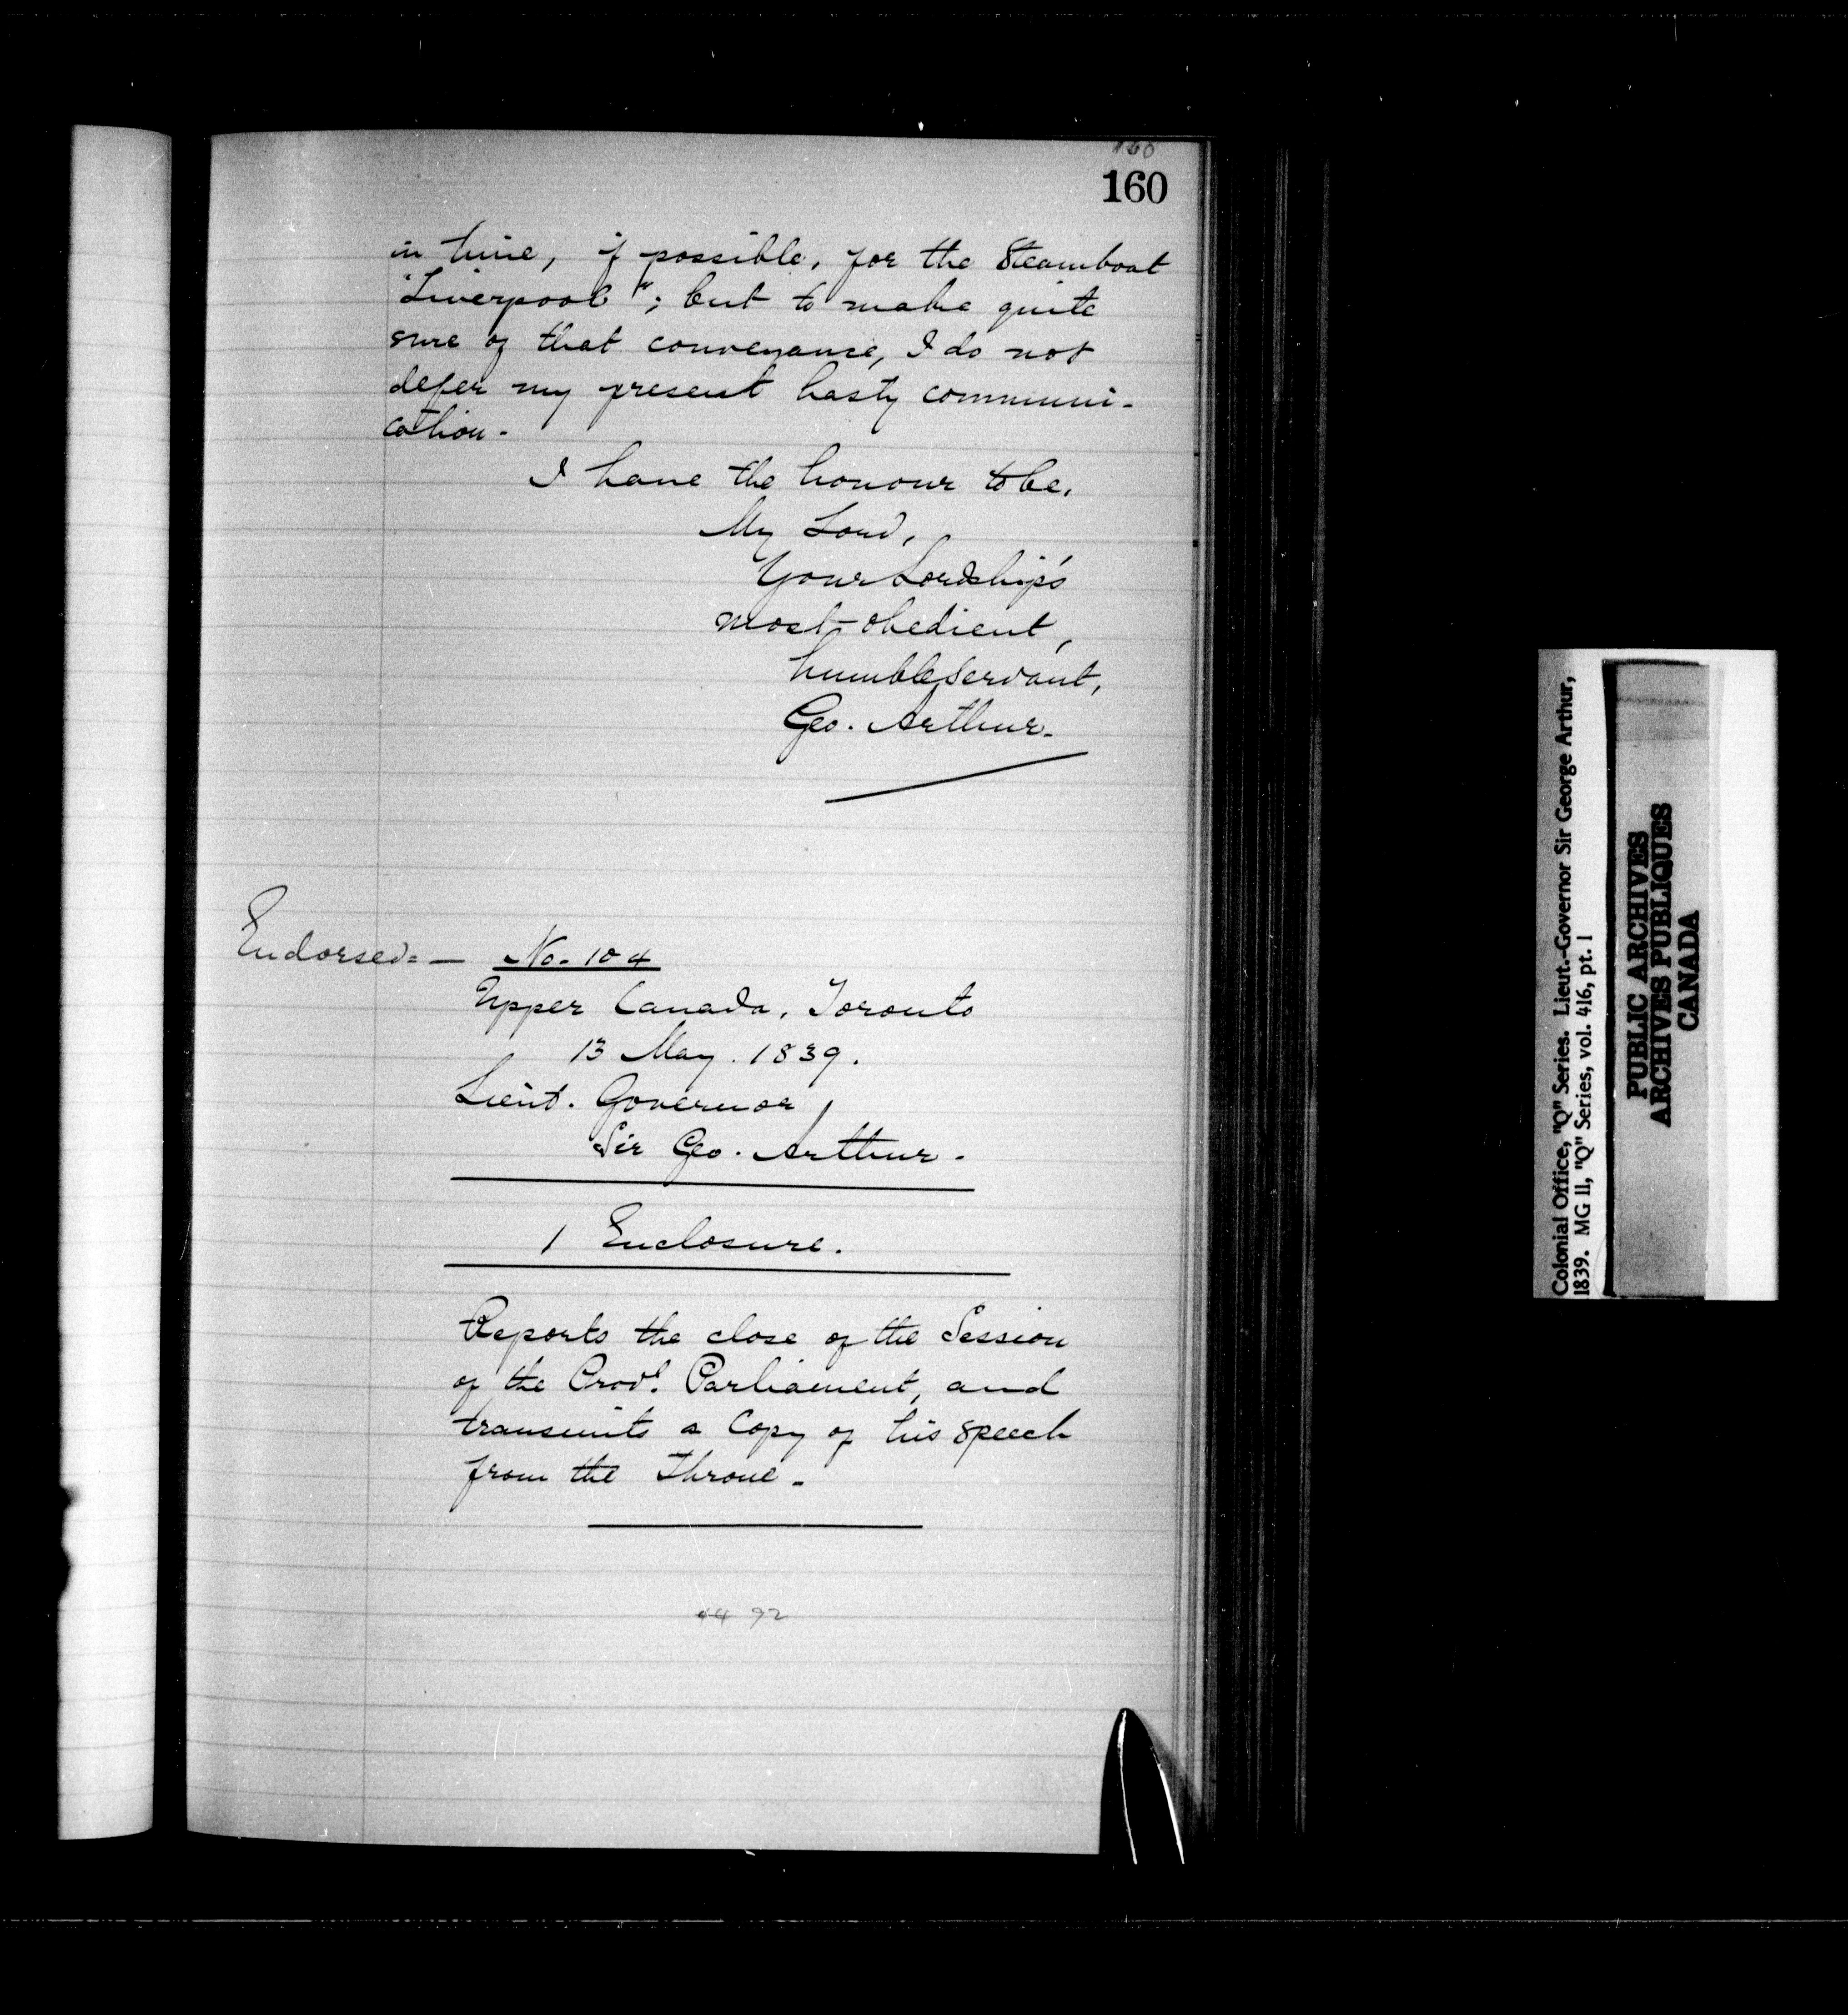 160
160
in time, if possible, for the Steamboat
"Liverpool"; but to make quite
sure of that conveyance, I do not
defer my present hasty communi-
cation.
I have the honour to be,
My Lord,
Your Lordship's
most obedient,
humble Servant,
Geo. Arthur.
Endorsed:— No. 104
Upper Canada, Toronto
13 May. 1839.
Lieut. Governor
Sir Geo. Arthur.
1 Enclosure.
Reports the close of the Session
of the Provl. Parliament, and
transmits a Copy of his speech
from the Throne.
44 92
Colonial Office, "Q" Series. Lieut.-Governor Sir George Arthur,
1839. MG 11, "Q" Series, vol. 416, pt. 1
PUBLIC ARCHIVES
ARCHIVES PUBLIQUES
CANADA